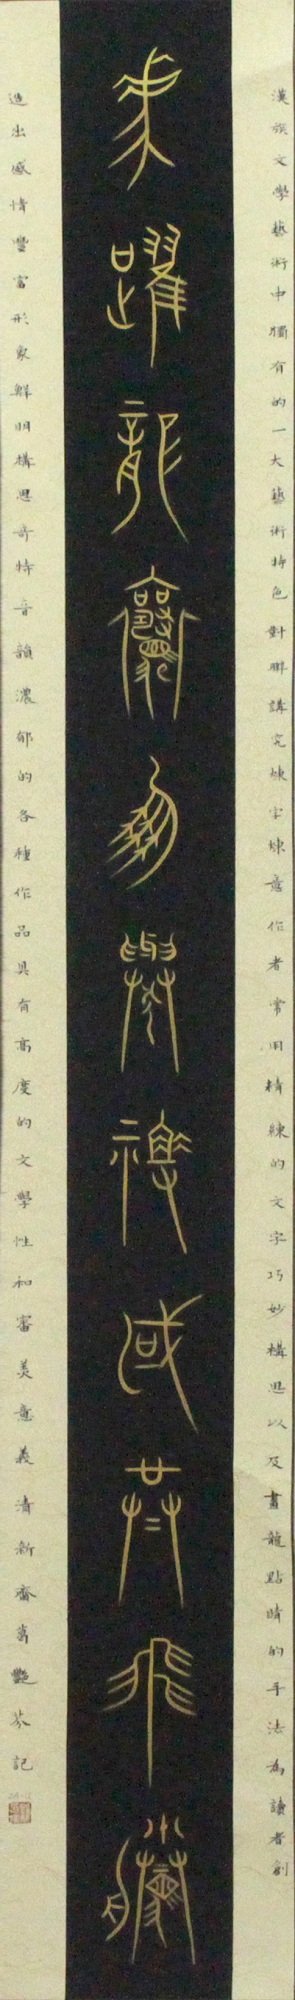 漢族文學藝術中獨有的一大藝術特色對聯講究煉字煉意作者常用精練的文字巧妙構思以及畫龍點睛的手法為讀者創
躍龍神域共飛騰
造出感情豐富形象鮮明構思奇特音韻濃郁的各種作品具有高度的文學性和審美意義清新齋萬艷芬記